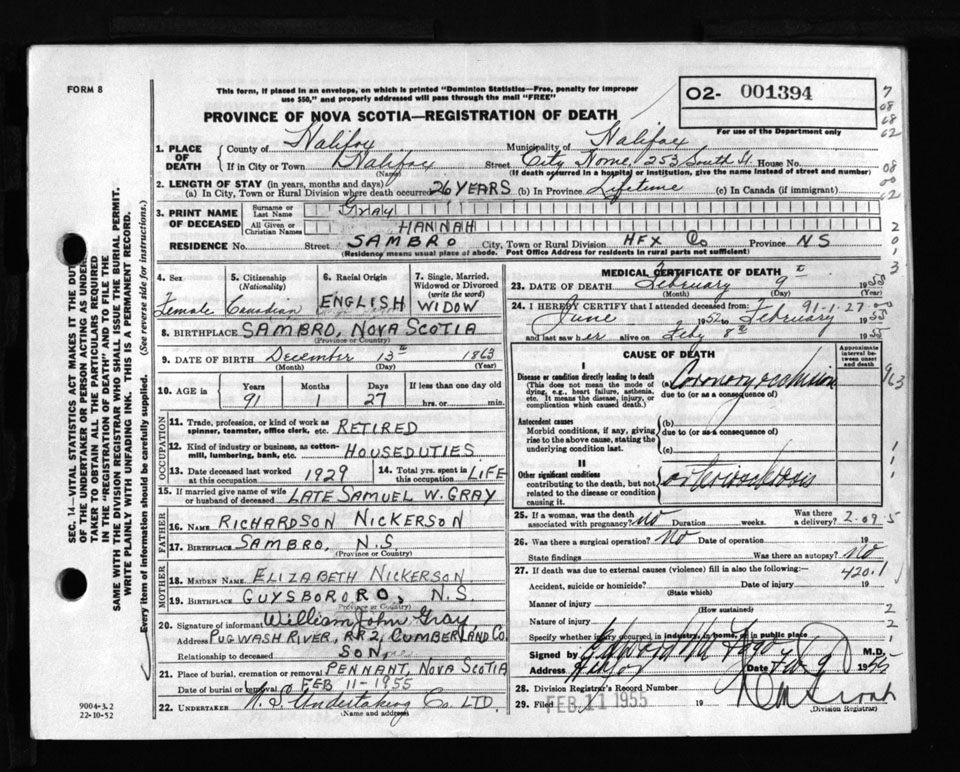 FORM 8
This form, if placed in an envelope, on which is printed "Dominion Statistics—Free, penalty for improper
use $50," and properly addressed will pass through the mail "FREE"
PROVINCE OF NOVA SCOTIA—REGISTRATION OF DEATH
O2- 001394
For use of the Department only
1. PLACE OF DEATH
County of Halifax Municipality of Halifax
If in City or Town Halifax Street City Home, 253 South St. House No.
(Name) (If death occurred in a hospital or institution, give the name instead of street and number)
2. LENGTH OF STAY (in years, months and days)
(a) In City, Town or Rural Division where death occurred 26 YEARS (b) In Province Lifetime (c) In Canada (if immigrant)
3. PRINT NAME OF DECEASED
Surname or Last Name Gray
All Given or Christian Names HANNAH
RESIDENCE No. Street SAMBRO City, Town or Rural Division HFX Co Province NS
(Residence means usual place of abode. Post Office Address for residents in rural parts not sufficient)
4. Sex Female
5. Citizenship (Nationality) Canadian
6. Racial Origin ENGLISH
7. Single, Married, Widowed or Divorced (write the word) WIDOW
8. BIRTHPLACE SAMBRO, NOVA SCOTIA
(Province or Country)
9. DATE OF BIRTH December 13th 1863
(Month) (Day) (Year)
10. AGE in Years Months Days If less than one day old
91 1 27 hrs. or min.
OCCUPATION
11. Trade, profession, or kind of work as spinner, teamster, office clerk, etc. RETIRED
12. Kind of industry or business, as cotton-mill, lumbering, bank, etc. HOUSEDUTIES
13. Date deceased last worked at this occupation 1929
14. Total yrs. spent in this occupation LIFE
15. If married give name of wife or husband of deceased LATE SAMUEL W. GRAY
FATHER
16. NAME RICHARDSON NICKERSON
17. BIRTHPLACE SAMBRO, N.S.
(Province or Country)
MOTHER
18. MAIDEN NAME ELIZABETH NICKERSON
19. BIRTHPLACE GUYSBORORO, N.S
(Province or Country)
20. Signature of informant William John Gray
Address PUGWASH RIVER, RR2, CUMBERLAND Co.
Relationship to deceased SON
21. Place of burial, cremation or removal PENNANT, NOVA SCOTIA
Date of burial or removal FEB 11-1955
22. UNDERTAKER N.S Undertaking Co. LTD.
(Name and address)
MEDICAL CERTIFICATE OF DEATH
23. DATE OF DEATH February 9th 1955
(Month) (Day) (Year)
24. I HEREBY CERTIFY that I attended deceased from: 91-1-27
June 1952 to February 1955
and last saw her alive on Feby 8th 1955
CAUSE OF DEATH
Approximate interval between onset and death
I
Disease or condition directly leading to death (a) Coronary occlusion
(This does not mean the mode of dying, as heart failure, asthenia, etc. It means the disease, injury, or complication which caused death.)
due to (or as a consequence of)
Antecedent causes (b)
Morbid conditions, if any, giving rise to the above cause, stating the underlying condition last.
due to (or as a consequence of)
(c)
II
Other significant conditions
contributing to the death, but not related to the disease or condition causing it.
arteriosclerosis
25. If a woman, was the death associated with pregnancy? No Duration weeks. Was there a delivery? 2-09-5
26. Was there a surgical operation? No Date of operation 19
State findings Was there an autopsy? No
27. If death was due to external causes (violence) fill in also the following:— 420.1
Accident, suicide or homicide? Date of injury 19
(State which)
Manner of injury
(How sustained)
Nature of injury
Specify whether injury occurred in industry, in home, or in public place
Signed by M.D.
Address Halifax Date Feb 9 1955
28. Division Registrar's Record Number
29. Filed FEB 11 1955 19
(Division Registrar)
SEC. 14—VITAL STATISTICS ACT MAKES IT THE DUTY
OF THE UNDERTAKER OR PERSON ACTING AS UNDERTAKER
TO OBTAIN ALL THE PARTICULARS REQUIRED
IN THE "REGISTRATION OF DEATH" AND TO FILE THE
SAME WITH THE DIVISION REGISTRAR WHO SHALL ISSUE THE BURIAL PERMIT.
WRITE PLAINLY WITH UNFADING INK. THIS IS A PERMANENT RECORD.
Every item of information should be carefully supplied. (See reverse side for instructions.)
9004-3.2
22-10-52